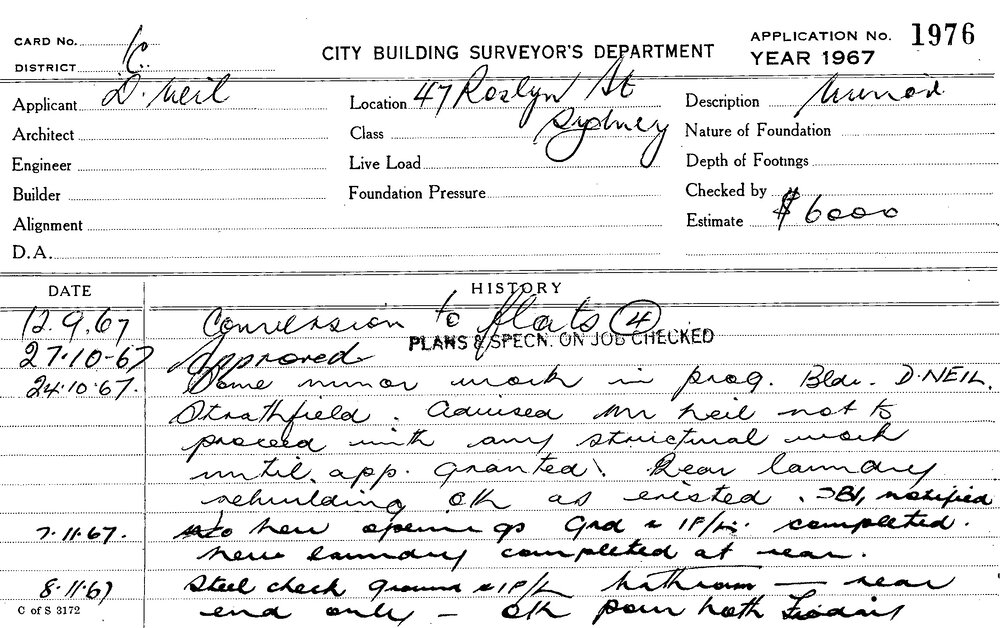 CARD No. 6
CITY BUILDING SURVEYOR'S DEPARTMENT
APPLICATION No. 1976
YEAR 1967
DISTRICT
Applicant D. Neil
Location 47 Roslyn St
Sydney
Description
Architect
Class
Nature of Foundation
Engineer
Live Load
Depth of Footings
Builder
Foundation Pressure
Checked by
Alignment
Estimate $6000
D.A.
DATE
HISTORY
12.9.67 Conversion to flats (4)
PLANS & SPECN. ON JOB CHECKED
27.10.67 Approved
24.10.67. Some minor work in prog. Bldr. D. NEIL,
Strathfield. Advised Mr Neil not to
proceed with any structural work
until app. granted. Rear laundry
rebuilding OK as existed. notified
7.11.67. new openings Grd & 1F/ completed.
new laundry completed at rear.
8.11.67 Steel check ground & 1F/L bathroom — rear
end only — OK pour both
C of S 3172